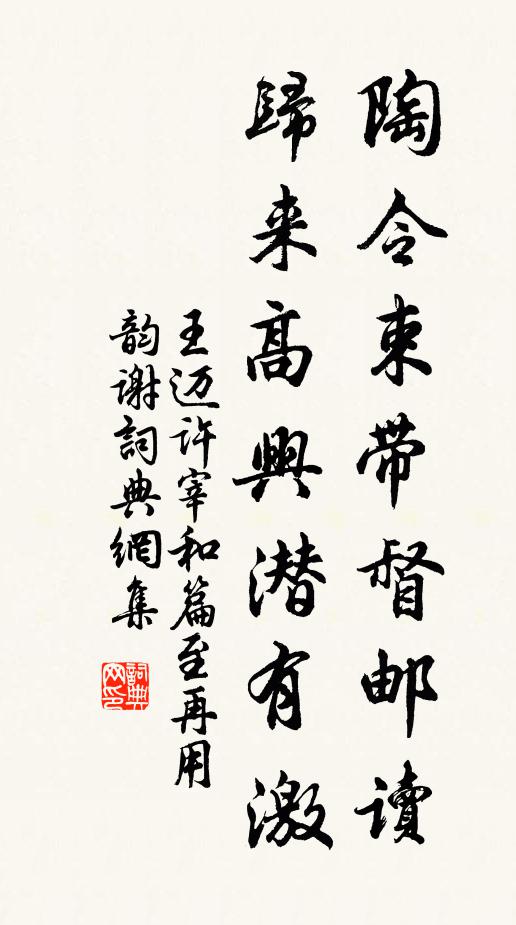 陶令束带督邮讀
歸来高興潜有激
王迈许宰和篇至再用
韵谢詞典網集
詞典网印